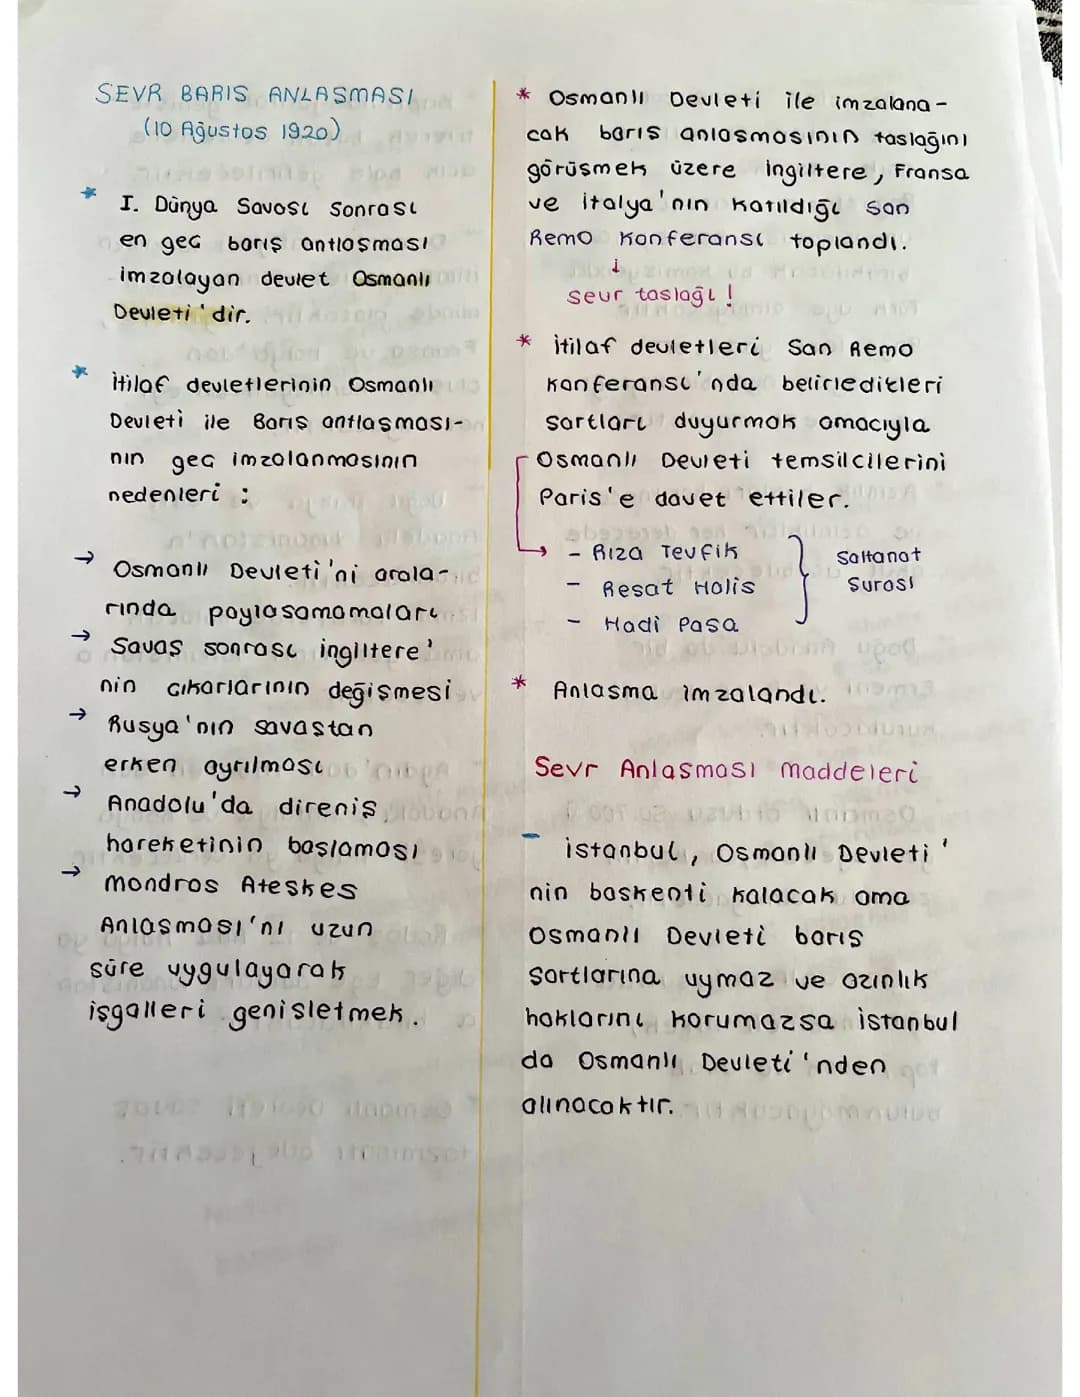 SEVR BARIS ANLASMASI
(10 Ağustos 1920)
* I. Dünya Savası Sonrası
en geç barış antlaşması
imzalayan devlet Osmanlı
Devleti'dir.
* itilaf devletlerinin Osmanlı
Devleti ile Barış antlaşması-
nın geç imzalanmasının
nedenleri :
→ Osmanlı Devleti'ni arala-
rında paylasamamaları
→ Savaş sonrası ingiltere'
nin çıkarlarının değişmesi
→ Rusya'nın savastan
erken ayrılması
→ Anadolu'da direniş
hareketinin başlaması
→ Mondros Ateskes
Anlaşması'nı uzun
süre uygulayarak
işgalleri genisletmek.
* Osmanlı Devleti ile imzalana-
cak barıs anlasmasının taslağını
görüşmek üzere ingiltere, Fransa
ve italya'nın katıldığı San
Remo Konferansı toplandı.
↓
Sevr taslağı !
* itilaf devletleri San Remo
Konferansı'nda belirledikleri
sartları duyurmak amacıyla
Osmanlı Devleti temsilcilerini
Paris'e davet ettiler.
→ - Rıza Tevfik
- Resat Halis
- Hadi Pasa
} Saltanat
Surası
* Anlasma imzalandı.
Sevr Anlasması maddeleri
- istanbul, Osmanlı Devleti'
nin baskenti kalacak ama
Osmanlı Devleti barış
Sartlarına uymaz ve azınlık
haklarını korumazsa istanbul
da Osmanlı Devleti'nden
alınacaktır.